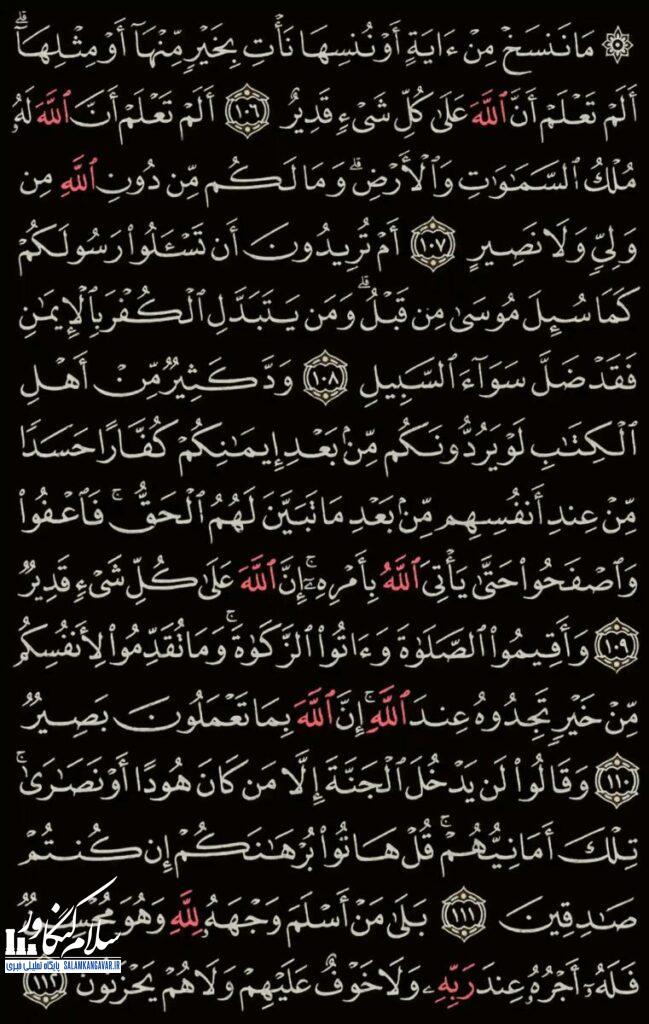 ۞ مَا نَنسَخْ مِنْ ءَايَةٍ أَوْ نُنسِهَا نَأْتِ بِخَيْرٍ مِّنْهَآ أَوْ مِثْلِهَآۗ
أَلَمْ تَعْلَمْ أَنَّ ٱللَّهَ عَلَىٰ كُلِّ شَىْءٍ قَدِيرٌ ١٠٦ أَلَمْ تَعْلَمْ أَنَّ ٱللَّهَ لَهُۥ
مُلْكُ ٱلسَّمَـٰوَٰتِ وَٱلْأَرْضِۗ وَمَا لَكُم مِّن دُونِ ٱللَّهِ مِن
وَلِىٍّ وَلَا نَصِيرٍ ١٠٧ أَمْ تُرِيدُونَ أَن تَسْـَٔلُوا۟ رَسُولَكُمْ
كَمَا سُئِلَ مُوسَىٰ مِن قَبْلُۗ وَمَن يَتَبَدَّلِ ٱلْكُفْرَ بِٱلْإِيمَـٰنِ
فَقَدْ ضَلَّ سَوَآءَ ٱلسَّبِيلِ ١٠٨ وَدَّ كَثِيرٌ مِّنْ أَهْلِ
ٱلْكِتَـٰبِ لَوْ يَرُدُّونَكُم مِّنۢ بَعْدِ إِيمَـٰنِكُمْ كُفَّارًا حَسَدًا
مِّنْ عِندِ أَنفُسِهِم مِّنۢ بَعْدِ مَا تَبَيَّنَ لَهُمُ ٱلْحَقُّۖ فَٱعْفُوا۟
وَٱصْفَحُوا۟ حَتَّىٰ يَأْتِىَ ٱللَّهُ بِأَمْرِهِۦٓۗ إِنَّ ٱللَّهَ عَلَىٰ كُلِّ شَىْءٍ قَدِيرٌ
١٠٩ وَأَقِيمُوا۟ ٱلصَّلَوٰةَ وَءَاتُوا۟ ٱلزَّكَوٰةَۚ وَمَا تُقَدِّمُوا۟ لِأَنفُسِكُم
مِّنْ خَيْرٍ تَجِدُوهُ عِندَ ٱللَّهِۗ إِنَّ ٱللَّهَ بِمَا تَعْمَلُونَ بَصِيرٌ
١١٠ وَقَالُوا۟ لَن يَدْخُلَ ٱلْجَنَّةَ إِلَّا مَن كَانَ هُودًا أَوْ نَصَـٰرَىٰۗ
تِلْكَ أَمَانِيُّهُمْۗ قُلْ هَاتُوا۟ بُرْهَـٰنَكُمْ إِن كُنتُمْ
صَـٰدِقِينَ ١١١ بَلَىٰ مَنْ أَسْلَمَ وَجْهَهُۥ لِلَّهِ وَهُوَ مُحْسِنٌ
فَلَهُۥٓ أَجْرُهُۥ عِندَ رَبِّهِۦ وَلَا خَوْفٌ عَلَيْهِمْ وَلَا هُمْ يَحْزَنُونَ ١١٢
سلام کنگاور
پایگاه تحلیلی خبری SALAMKANGAVAR.IR